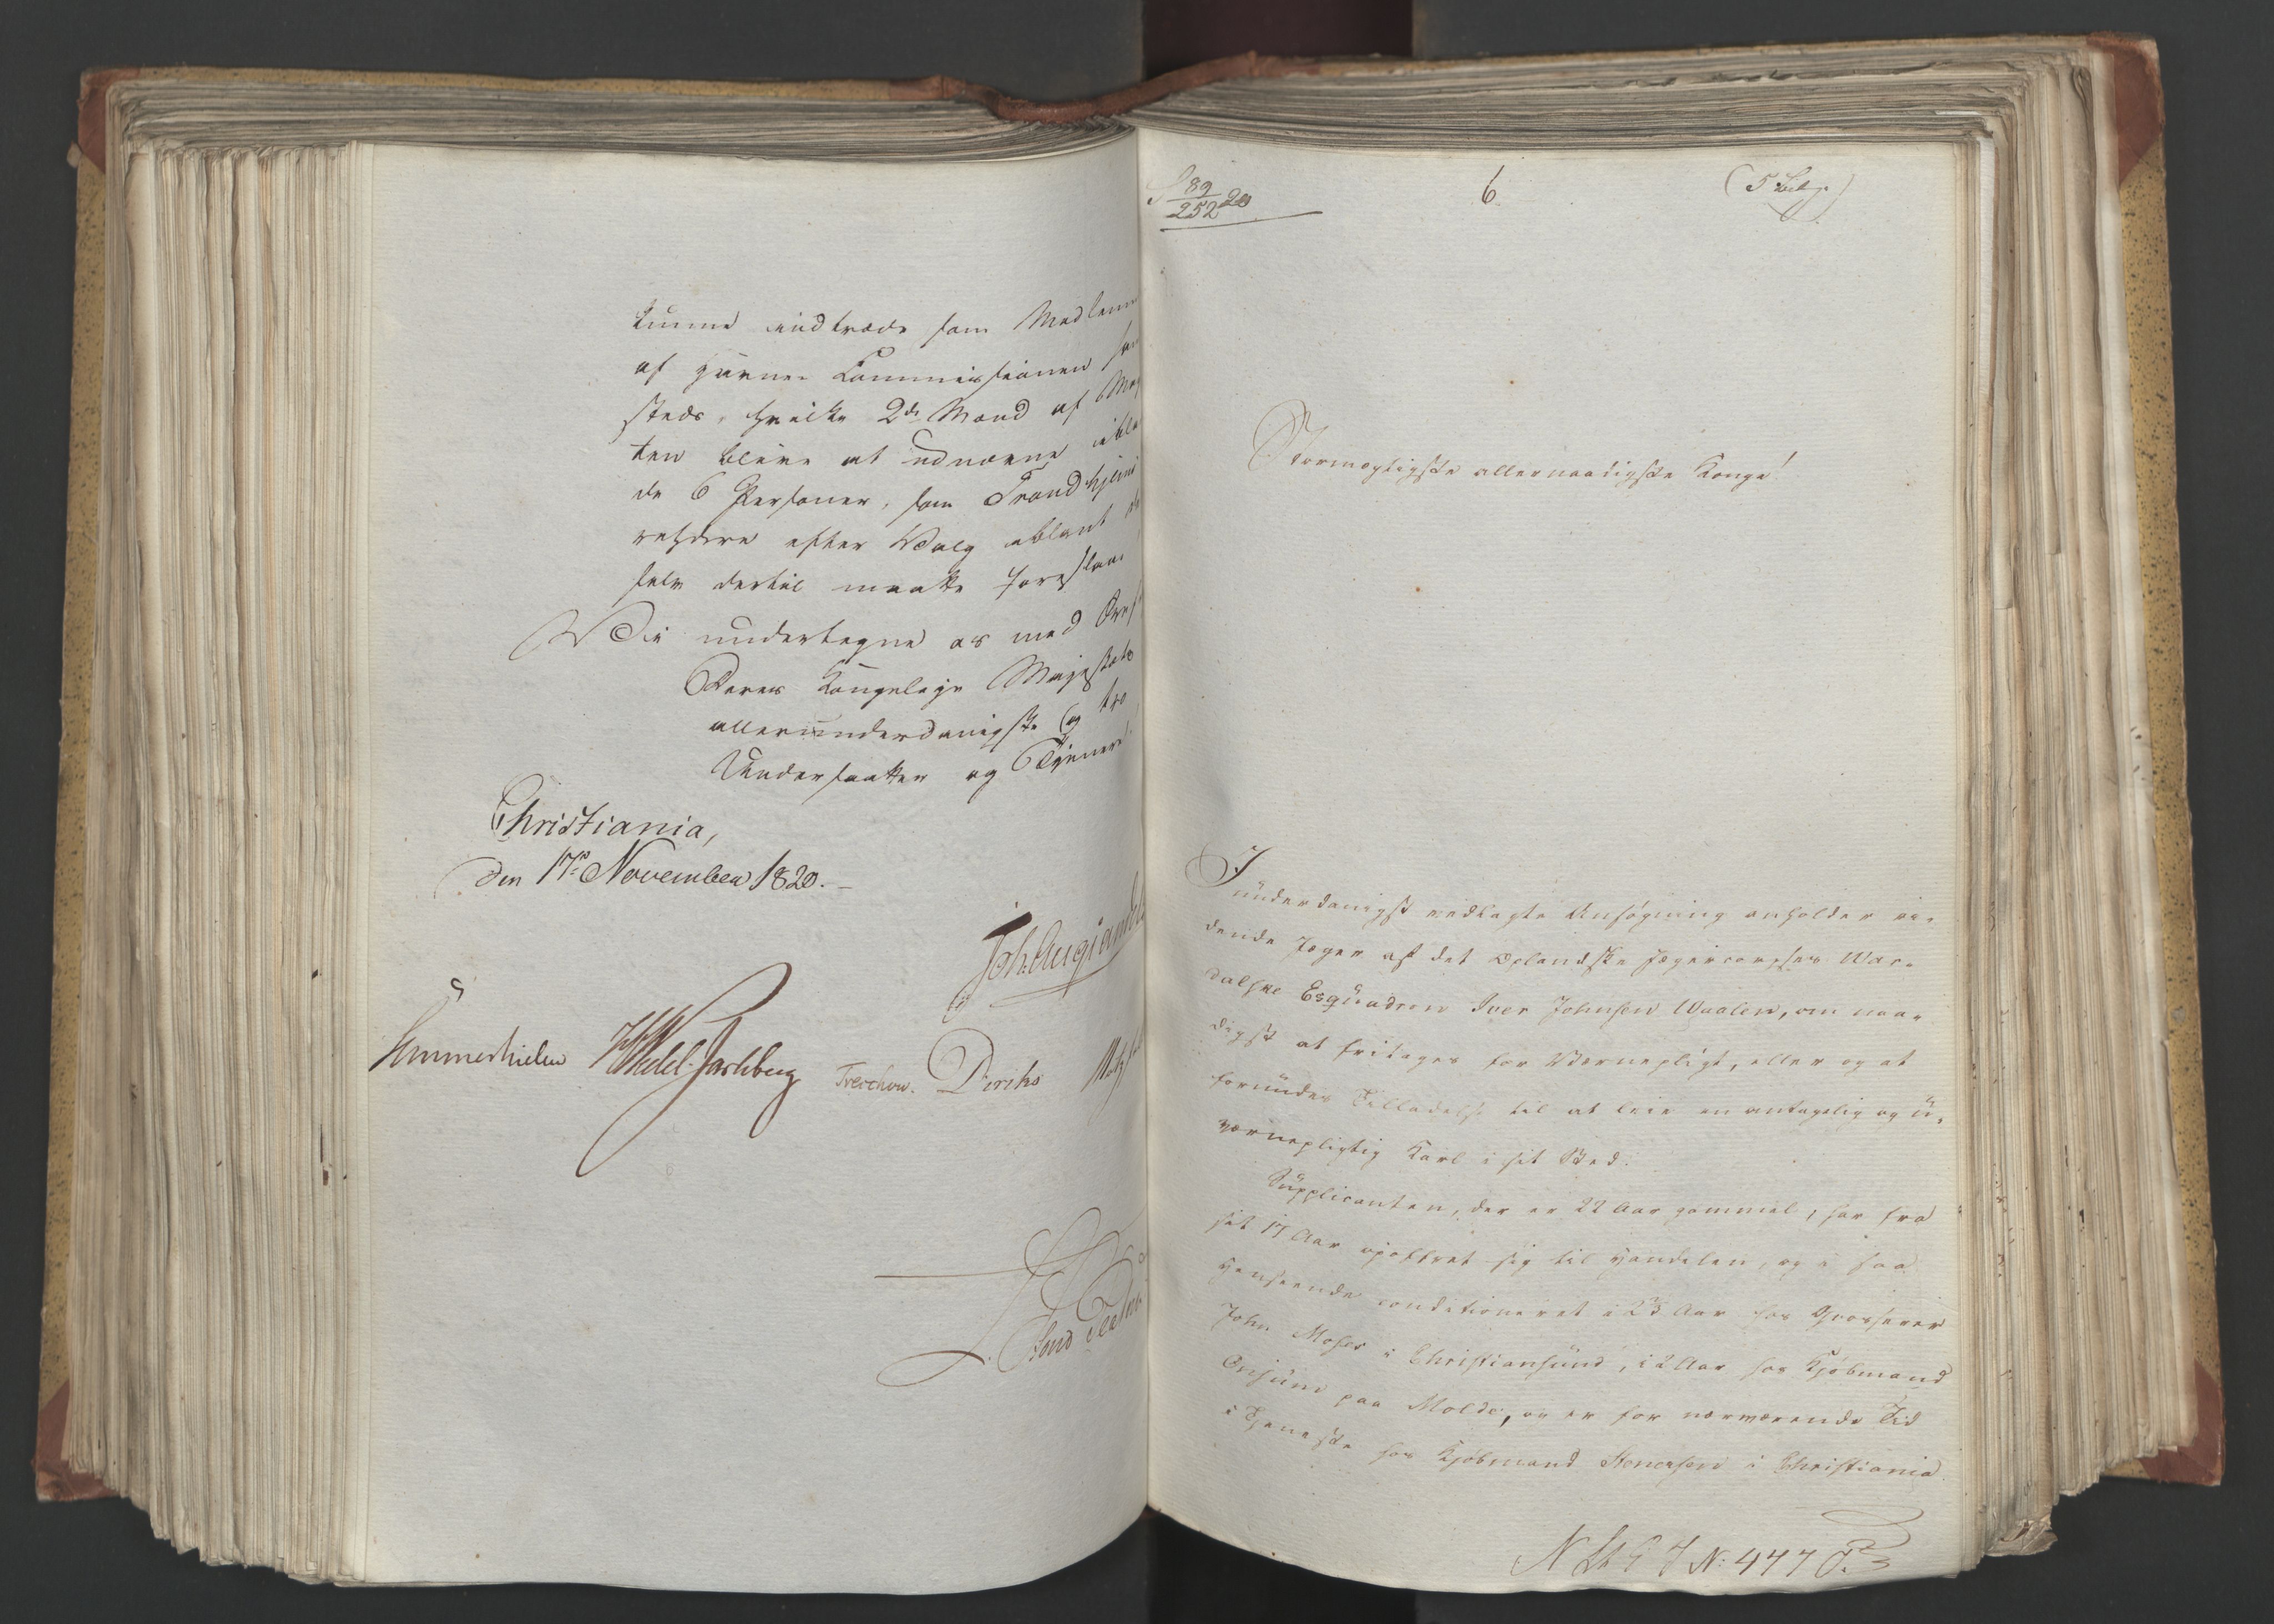 kunne indtræde som Medlem
af havne Commissionen
steds, hvilke 2de Mænd af
ten bleve at udnævne
de 6 Personer, som Trondhjems
efter Valg iblant
selv dertil maatte foreslaae
Vi undertegne os med
Deres Kongelige Majestæts
allerunderdanigste og tro
Undersaatter og Tjenere
Christiania,
den 17de November 1820.
Joh. Aug. Sandels
Sommerhielm HWedel-Jarlsberg Treschow. Diriks Motzfeldt
S 89/252 20
6
(5 Bilag.)
Stormægtigste allernaadigste Konge!
I underdanigst vedlagte Ansøgning anholder ri-
dende Jæger af det Oplandske Jægercorpses Wær-
dalske Esquadron Iver Johnsen Waalen, om naa-
digst at fritages for Værnepligt, eller og at
forundes Tilladelse til at leie en antagelig og u-
værnepligtig Karl i sit Sted.
Supplicanten, der er 22 Aar gammel, har fra
sit 17 Aar opoffret sig til Handelen, og i saa
Henseende conditioneret i 2½ Aar hos Grosserer
John Moses i Christiansund, i 2 Aar hos Kjøbmand
Onsum paa Molde, og er for nærværende Tid
i Tjeneste hos Kjøbmand Stenersen i Christiania
N: 447